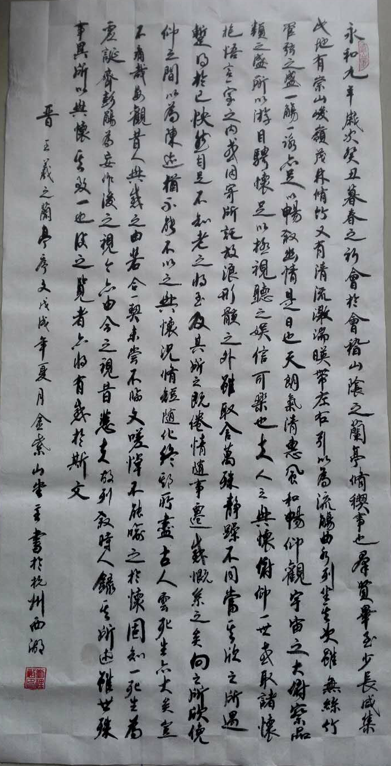 永和九年歲次癸丑暮春之初會於會稽山陰之蘭亭脩稧事也羣賢畢至少長咸集
此地有崇山峻嶺茂林脩竹又有清流激湍暎帶左右引以為流觴曲水列坐其次雖無絲竹
管弦之盛一觴一詠亦足以暢敘幽情是日也天朗氣清惠風和暢仰觀宇宙之大俯察品
類之盛所以游目騁懷足以極視聽之娛信可樂也夫人之與懷俯仰一世或取諸懷
抱悟言一室之內或因寄所託放浪形骸之外雖取舍萬殊靜躁不同當其欣於所遇
暫得於己快然自足不知老之將至及其所之既倦情隨事遷感慨係之矣向之所欣俛
仰之間以為陳迹猶不能不以之興懷況脩短隨化終期於盡古人雲死生亦大矣豈
不痛哉每觀昔人興感之由若合一契未嘗不臨文嗟悼不能喻之於懷固知一死生為
虛誕齊彭殤為妄作後之視今亦由今之視昔悲夫故列敘時人錄其所述雖世殊
事異所以興懷其致一也後之覽者亦將有感於斯文
晉王羲之蘭亭序文戊戌年夏月金紫山堂主書於杭州西湖